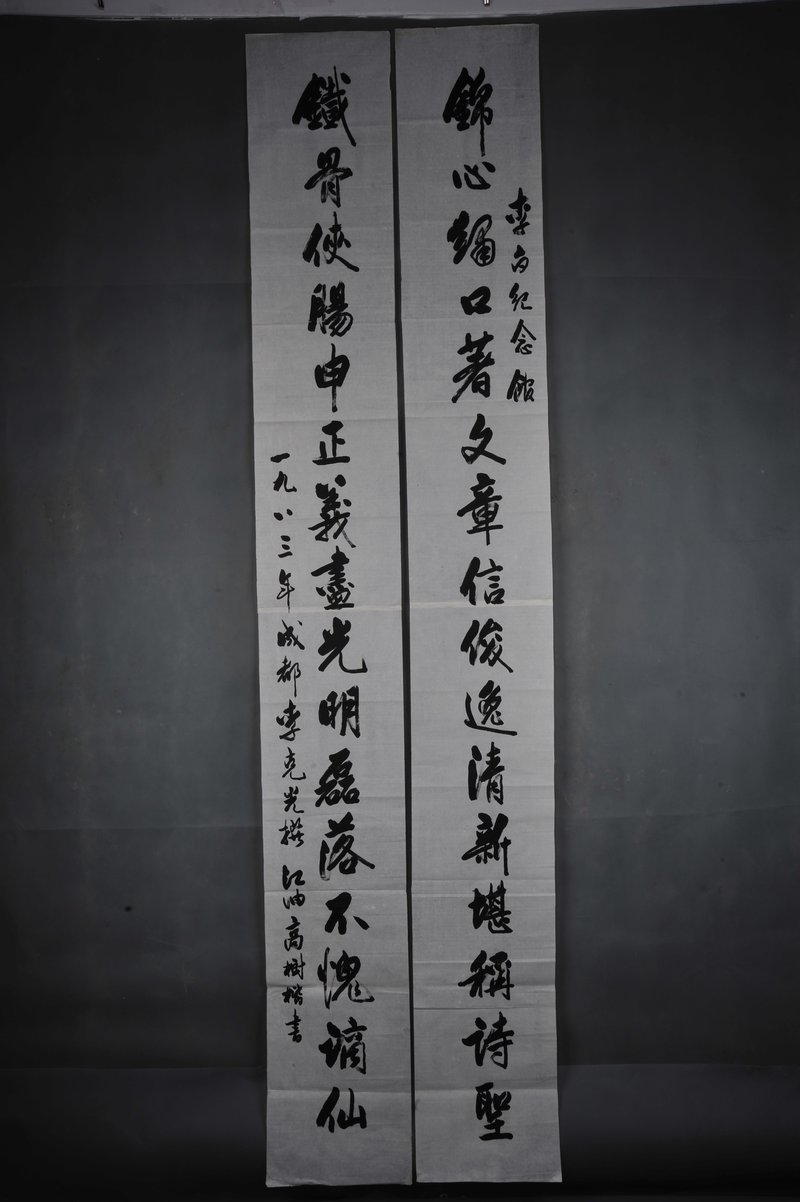 李白纪念馆
錦心繡口著文章信俊逸清新堪稱诗聖
鐵骨俠腸申正義盡光明磊落不愧謫仙
一九八三年成都李克光撰 江油高树楷書